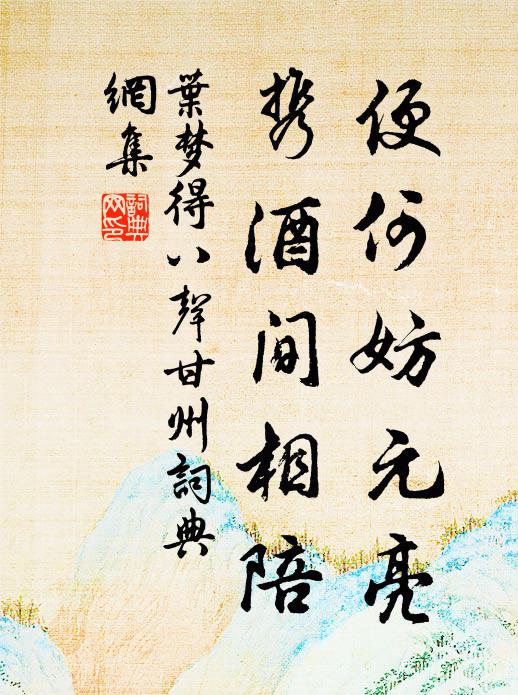 便何妨元亮
携酒间相陪
葉梦得八聲甘州詞典
網集
詞典网印